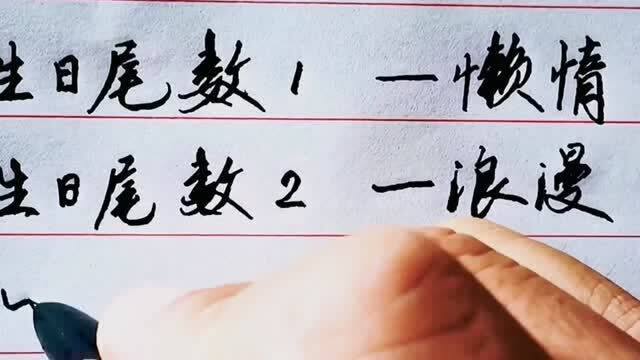 生日尾数1 一懒惰
生日尾数2 一浪漫